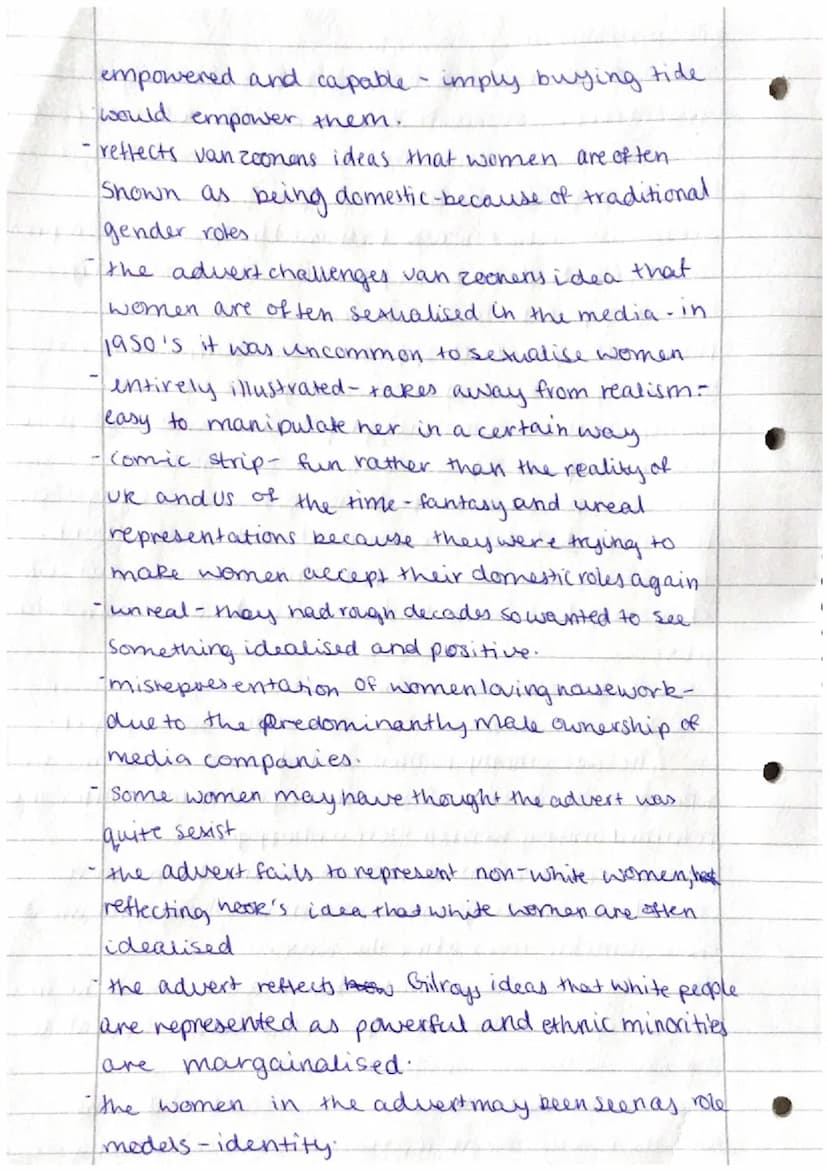 empowered and capable - imply buying tide
would empower them.
- reflects vanzoonens ideas that women are often
shown as being domestic-because of traditional
gender roles
- the advert challenges van zoonens idea that
women are often sexualised in the media - in
1950's it was uncommon to sexualise women
- entirely illustrated - takes away from realism -
easy to manipulate her in a certain way
- comic strip - fun rather than the reality of
UK and US of the time - fantasy and ureal
representations because they were trying to
make women accept their domestic roles again
- unreal - they had rough decades so wanted to see
something idealised and positive.
- misrepresentation of women loving housework -
due to the predominantly male ownership of
media companies.
- some women may have thought the advert was
quite sexist
- the advert fails to represent non-white women,
reflecting hook's idea that white women are often
idealised
- the advert reflects Gilroys ideas that white people
are represented as powerful and ethnic minorities
are margainalised.
- the women in the advert may been seen as role
models - identity.